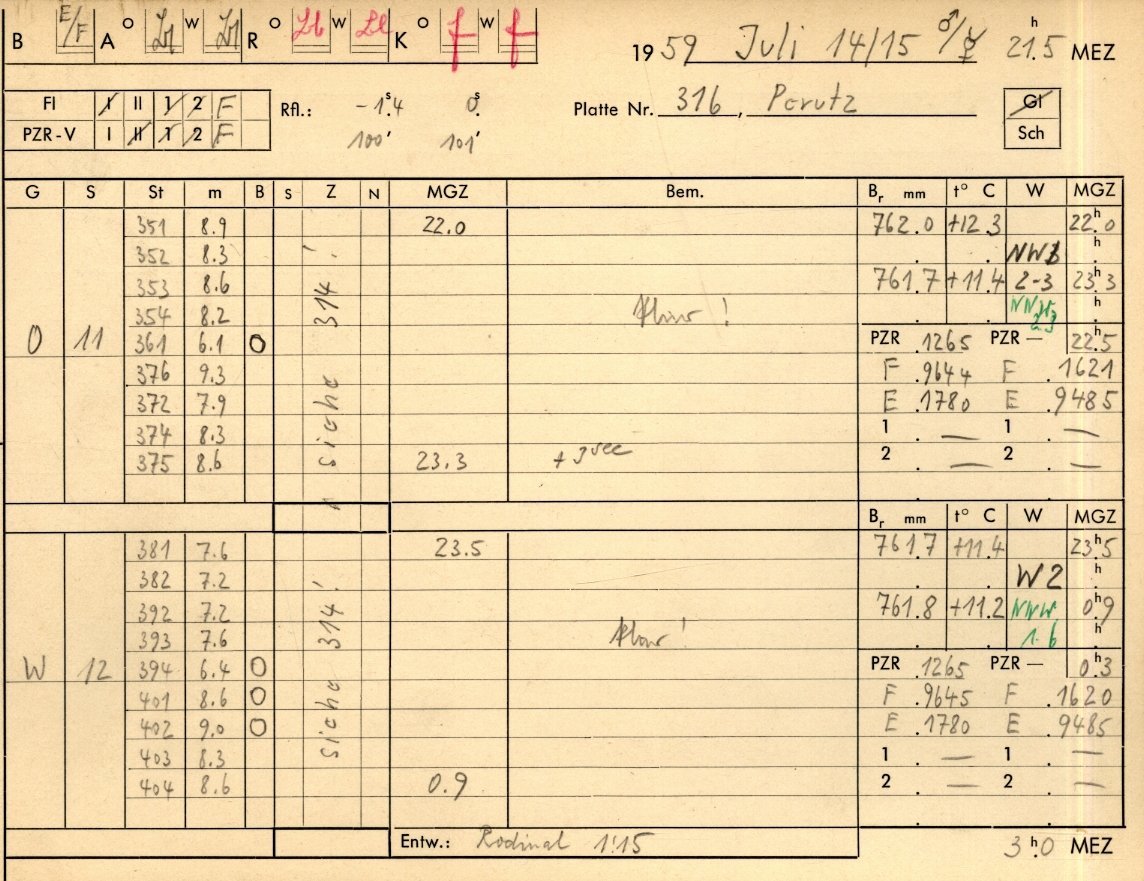 B E/F A O W R O Lb W K O f W f
1959 Juli 14/15 ♂/☿ 21.5 h MEZ
FI I II 1 2 F
PZR-V I II 1 2 F
Rfl.: -1.4 s 0. s
100' 101'
Platte Nr. 316, Perutz
Gl
Sch
G S St m B S Z N MGZ Bem. Br mm t° C W MGZ
351 8.9 22.0 762.0 +12.3 22.0 h
352 8.3 . . NW3 . h
353 8.6 761.7 +11.4 2-3 23.3 h
354 8.2 klar! . . . h
O 11 361 6.1 O PZR .1265 PZR — 22.5 h
376 9.3 F .9644 F .1621
372 7.9 E .1780 E .9485
374 8.3 1 . — 1 . —
375 8.6 23.3 +3 sec 2 . — 2 . —
siehe 314!
Br mm t° C W MGZ
381 7.6 23.5 761.7 +11.4 23.5 h
382 7.2 . . W2 . h
392 7.2 761.8 +11.2 NNW 0.9 h
393 7.6 klar! . . 1-6 . h
W 12 394 6.4 O PZR .1265 PZR — 0.3 h
401 8.6 O F .9645 F .1620
402 9.0 O E .1780 E .9485
403 8.3 1 . — 1 . —
404 8.6 0.9 2 . — 2 . —
siehe 314!
Entw.: Rodinal 1:15 3.0 h MEZ